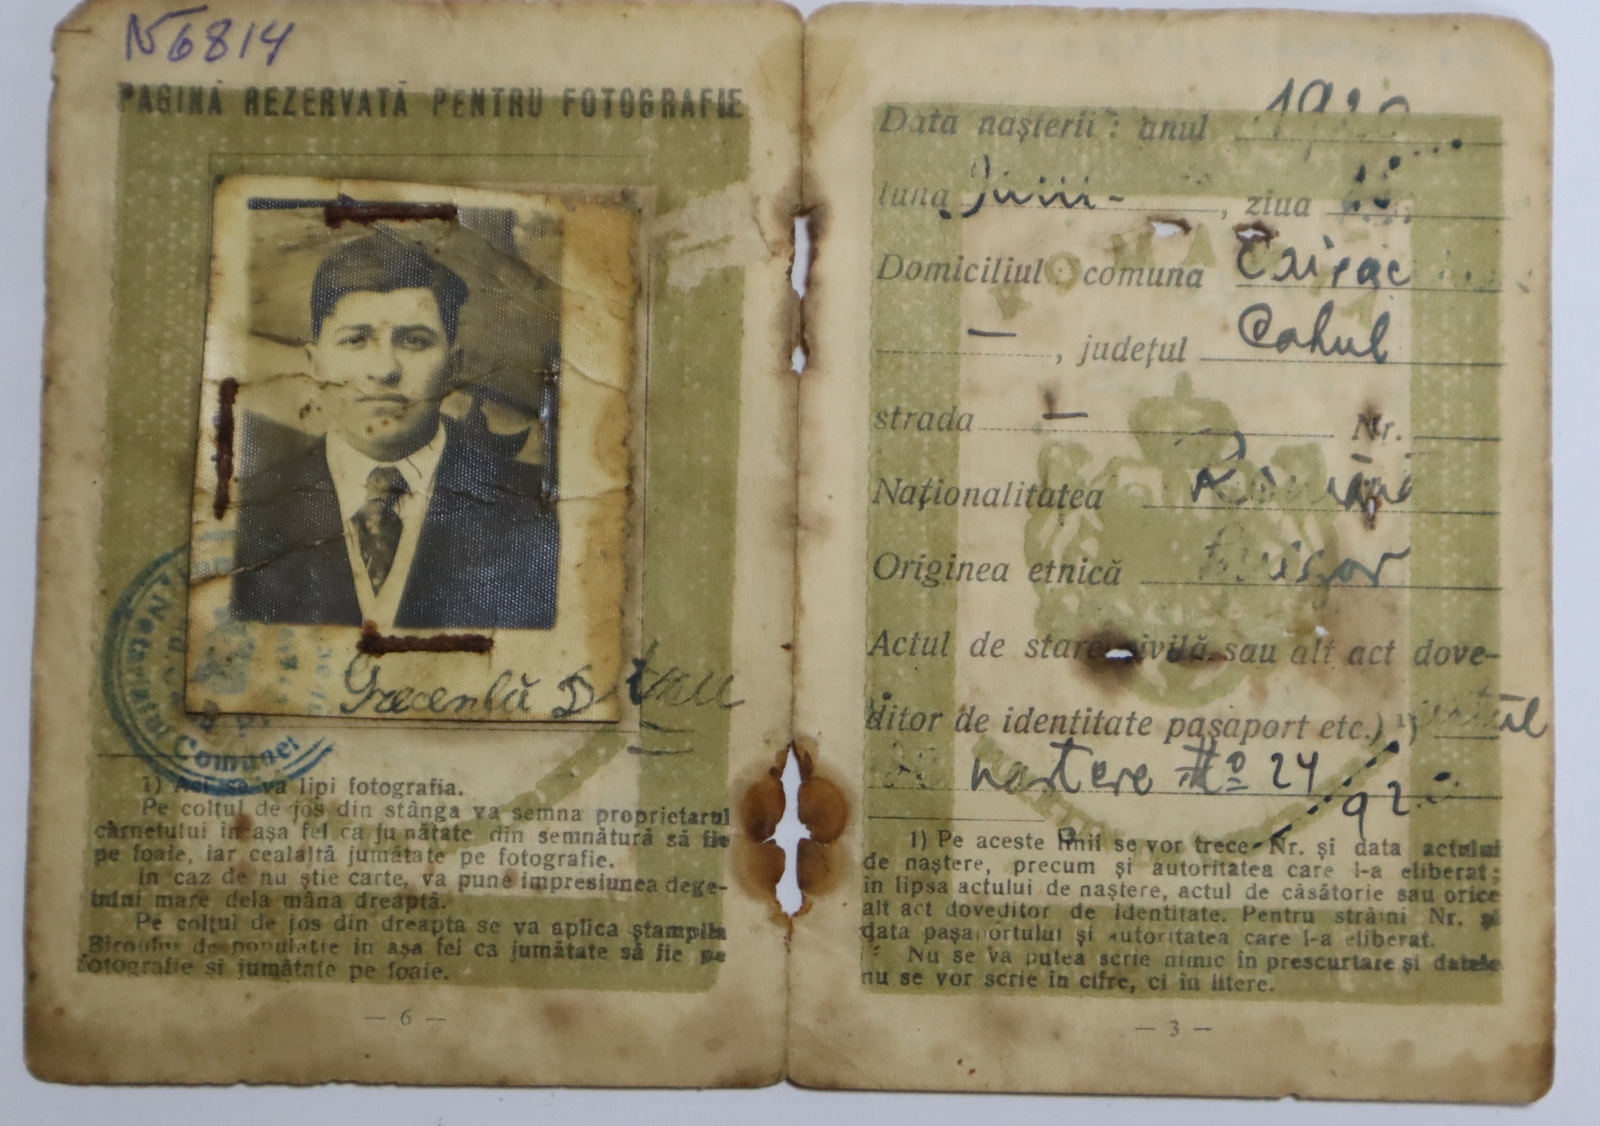 N 6814
PAGINĂ REZERVATĂ PENTRU FOTOGRAFIE
Notariatul Comunei
1) Aci se va lipi fotografia.
Pe colțul de jos din stânga va semna proprietarul
cărnetului în așa fel ca jumătate din semnătură să fie
pe foaie, iar cealaltă jumătate pe fotografie.
În caz de nu știe carte, va pune impresiunea dege-
tului mare dela mâna dreaptă.
Pe colțul de jos din dreapta se va aplica ștampila
Biroului de populație în așa fel ca jumătate să fie pe
fotografie si jumătate pe foaie.
— 6 —
Data nașterii : anul
luna Iunii - , ziua
Domiciliul : comuna
— , județul Cahul
strada — Nr.
Naționalitatea Română
Originea etnică
Actul de stare civilă sau alt act dove-
ditor de identitate pașaport etc.) 1)
naștere No 24
1) Pe aceste linii se vor trece Nr. și data actului
de naștere, precum și autoritatea care i-a eliberat ;
in lipsa actului de naștere, actul de căsătorie sau orice
alt act doveditor de identitate. Pentru străini Nr. și
data pașaportului și autoritatea care l-a eliberat.
Nu se va putea scrie nimic în prescurtare și datele
nu se vor scrie în cifre, ci în litere.
— 3 —